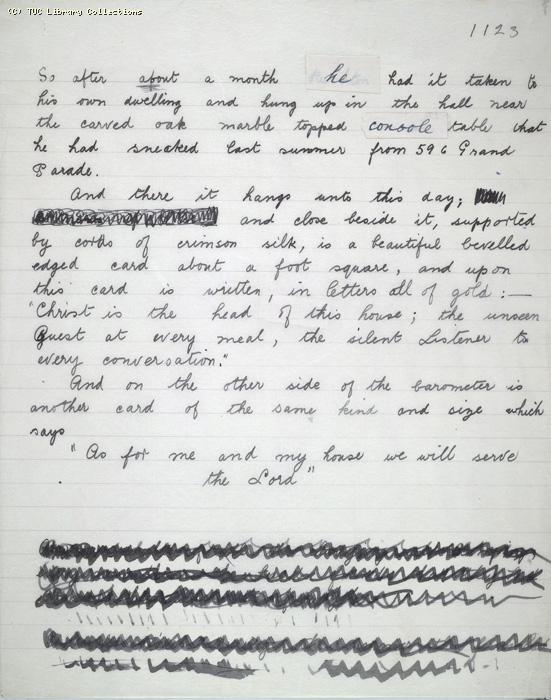 (C) TUC Library Collections
1123
So after about a month he had it taken to
his own dwelling and hung up in the hall near
the carved oak marble topped console table that
he had sneaked last summer from 596 Grand
Parade.
And there it hangs unto this day;
and close beside it, supported
by cords of crimson silk, is a beautiful bevelled
edged card about a foot square, and upon
this card is written, in letters all of gold :—
"Christ is the head of this house; the unseen
Guest at every meal, the silent Listener to
every conversation."
And on the other side of the barometer is
another card of the same kind and size which
says
"As for me and my house we will serve
the Lord"